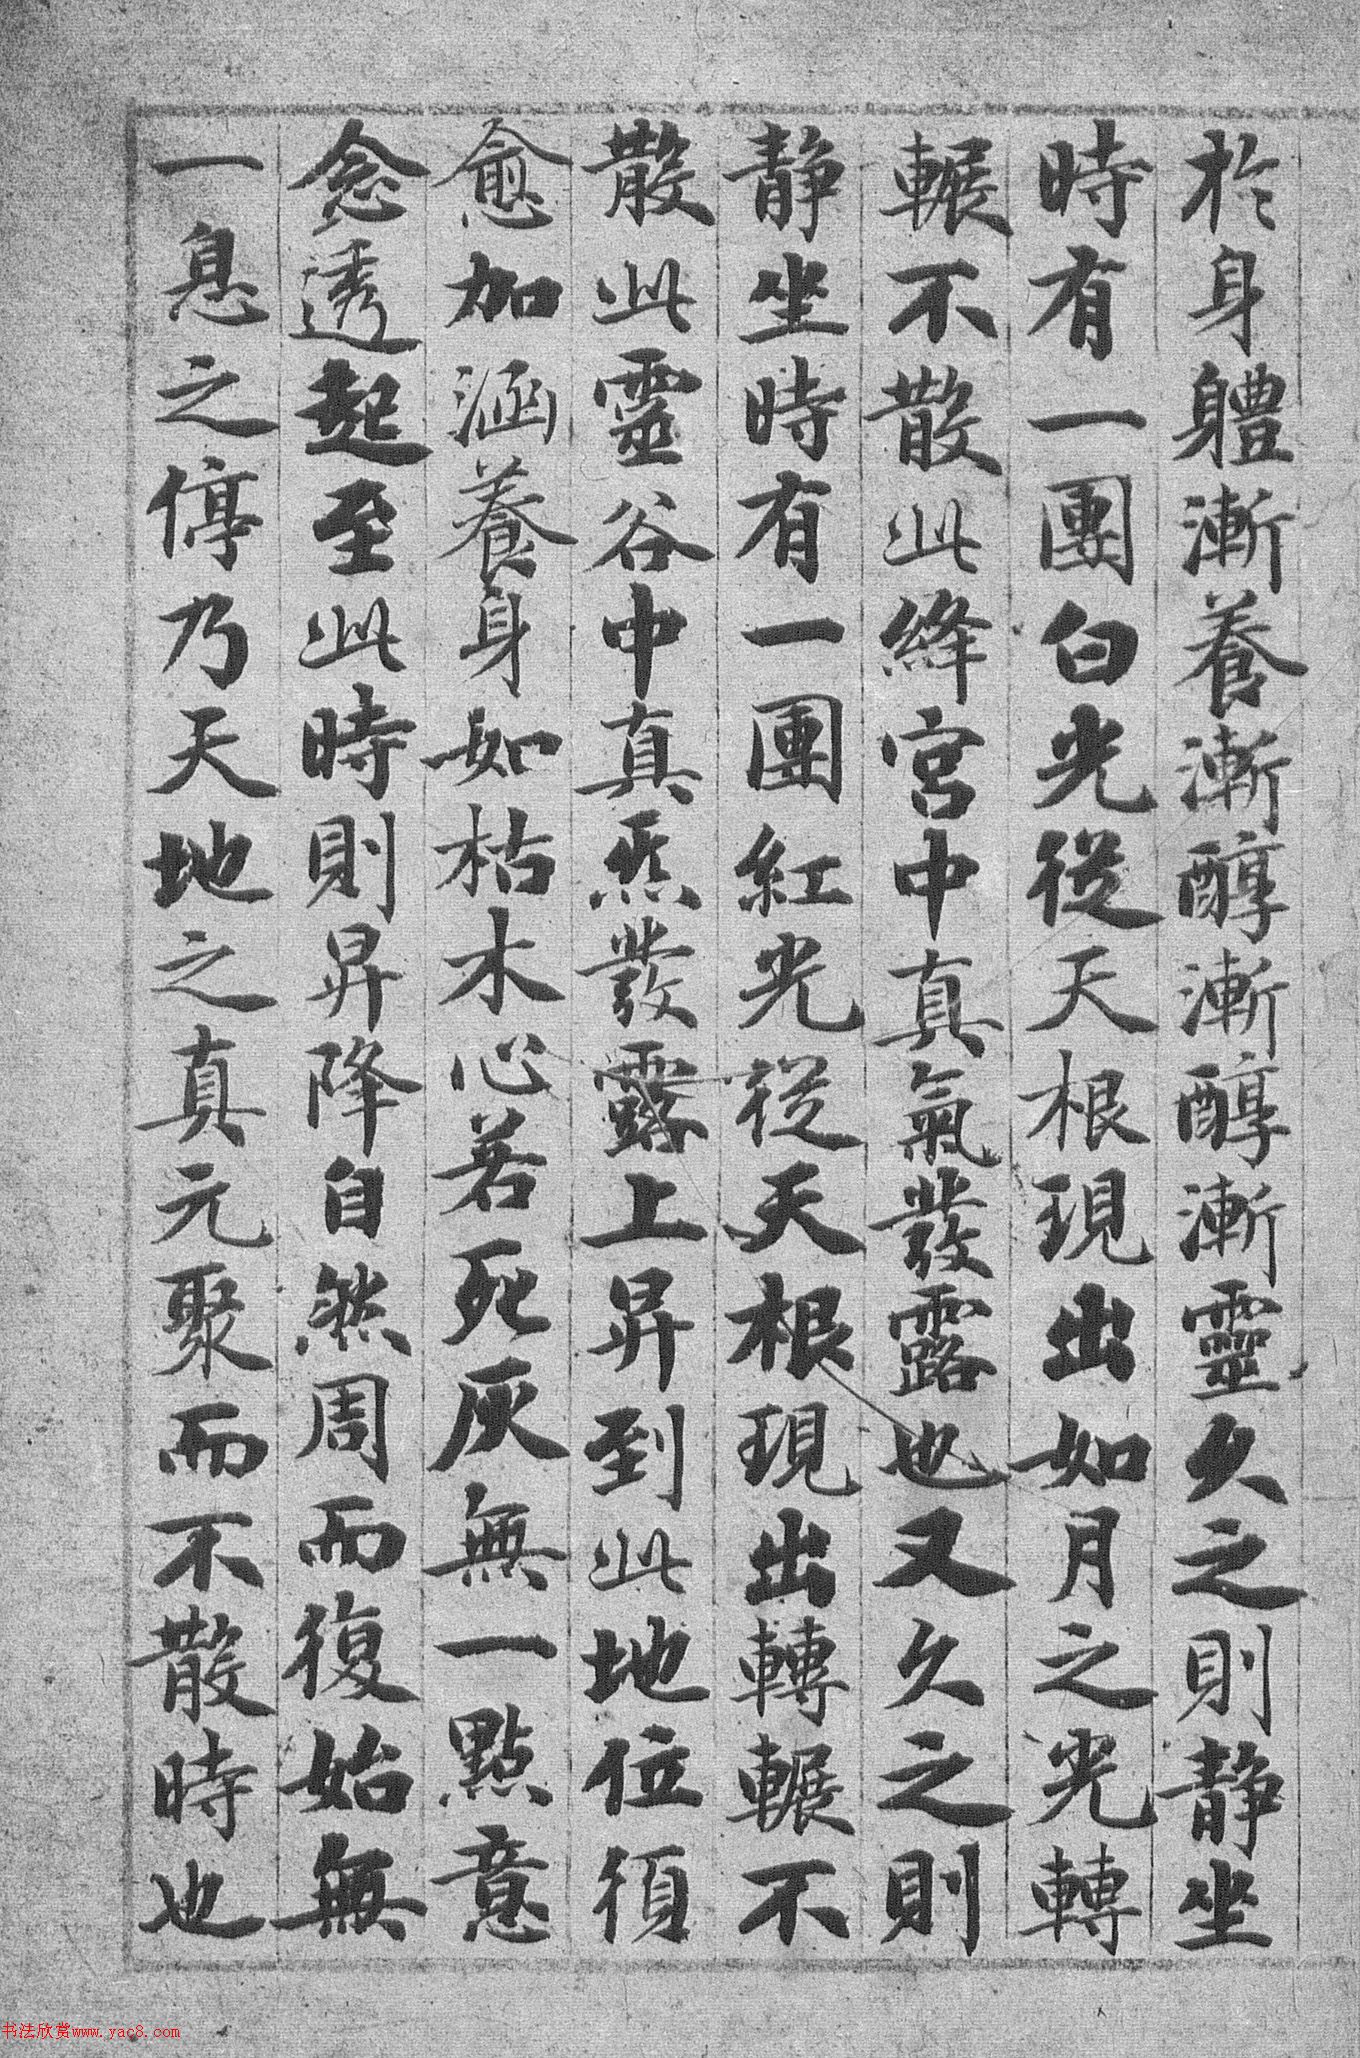 於身軆漸養漸醇漸醇漸靈久之則静坐
時有一團白光從天根現出如月之光轉
輾不散此絳宮中真氣發露也又久之則
静坐時有一團紅光從天根現出轉輾不
散此靈谷中真炁發露上昇到此地位須
愈加涵養身如枯木心若死灰無一點意
念透起至此時則昇降自然周而復始無
一息之停乃天地之真元聚而不散時也
书法欣赏www.yac8.com